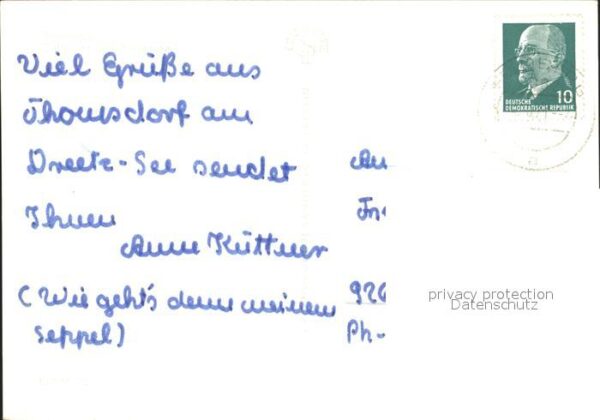 Viel Grüße aus
Thomsdorf am
Dreetz-See sendet
Ihnen
Anne Küttner
(Wie geht's denn meinem
Seppel)
10
DEUTSCHE
DEMOKRATISCHE REPUBLIK
An
920
Ph-
privacy protection
Datenschutz